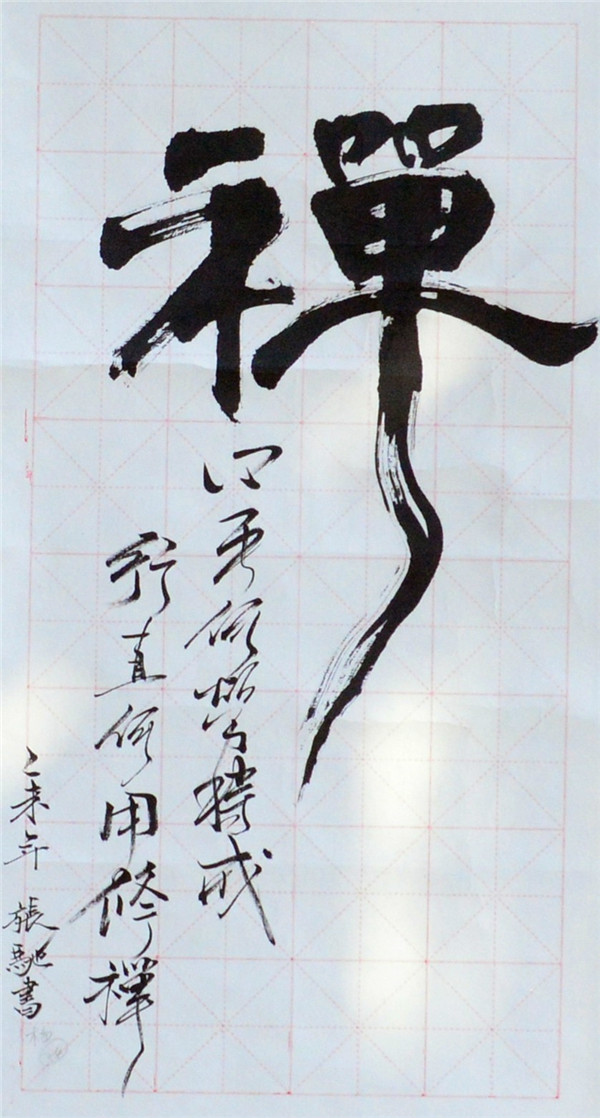 禪
心平何勞持戒
行直何用修禪
乙未年 張馳書